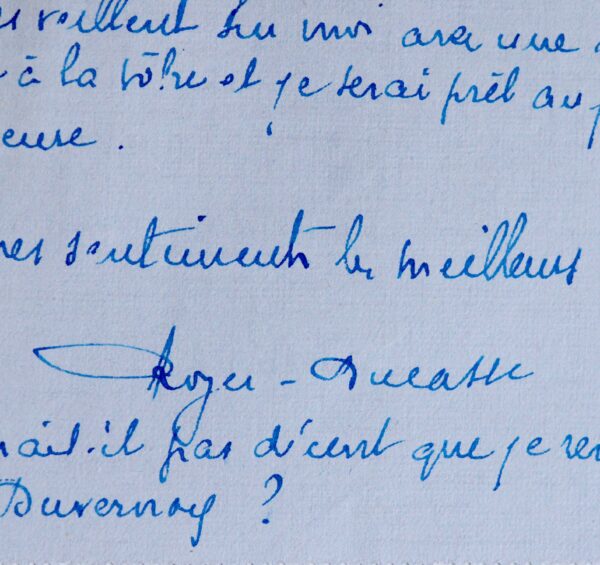 veillent sur moi avec une
à la vôtre et je serai prêt au
euse.
mes sentiments les meilleurs
Roger-Ducasse
rait-il pas décent que je ren
Duvernoy ?